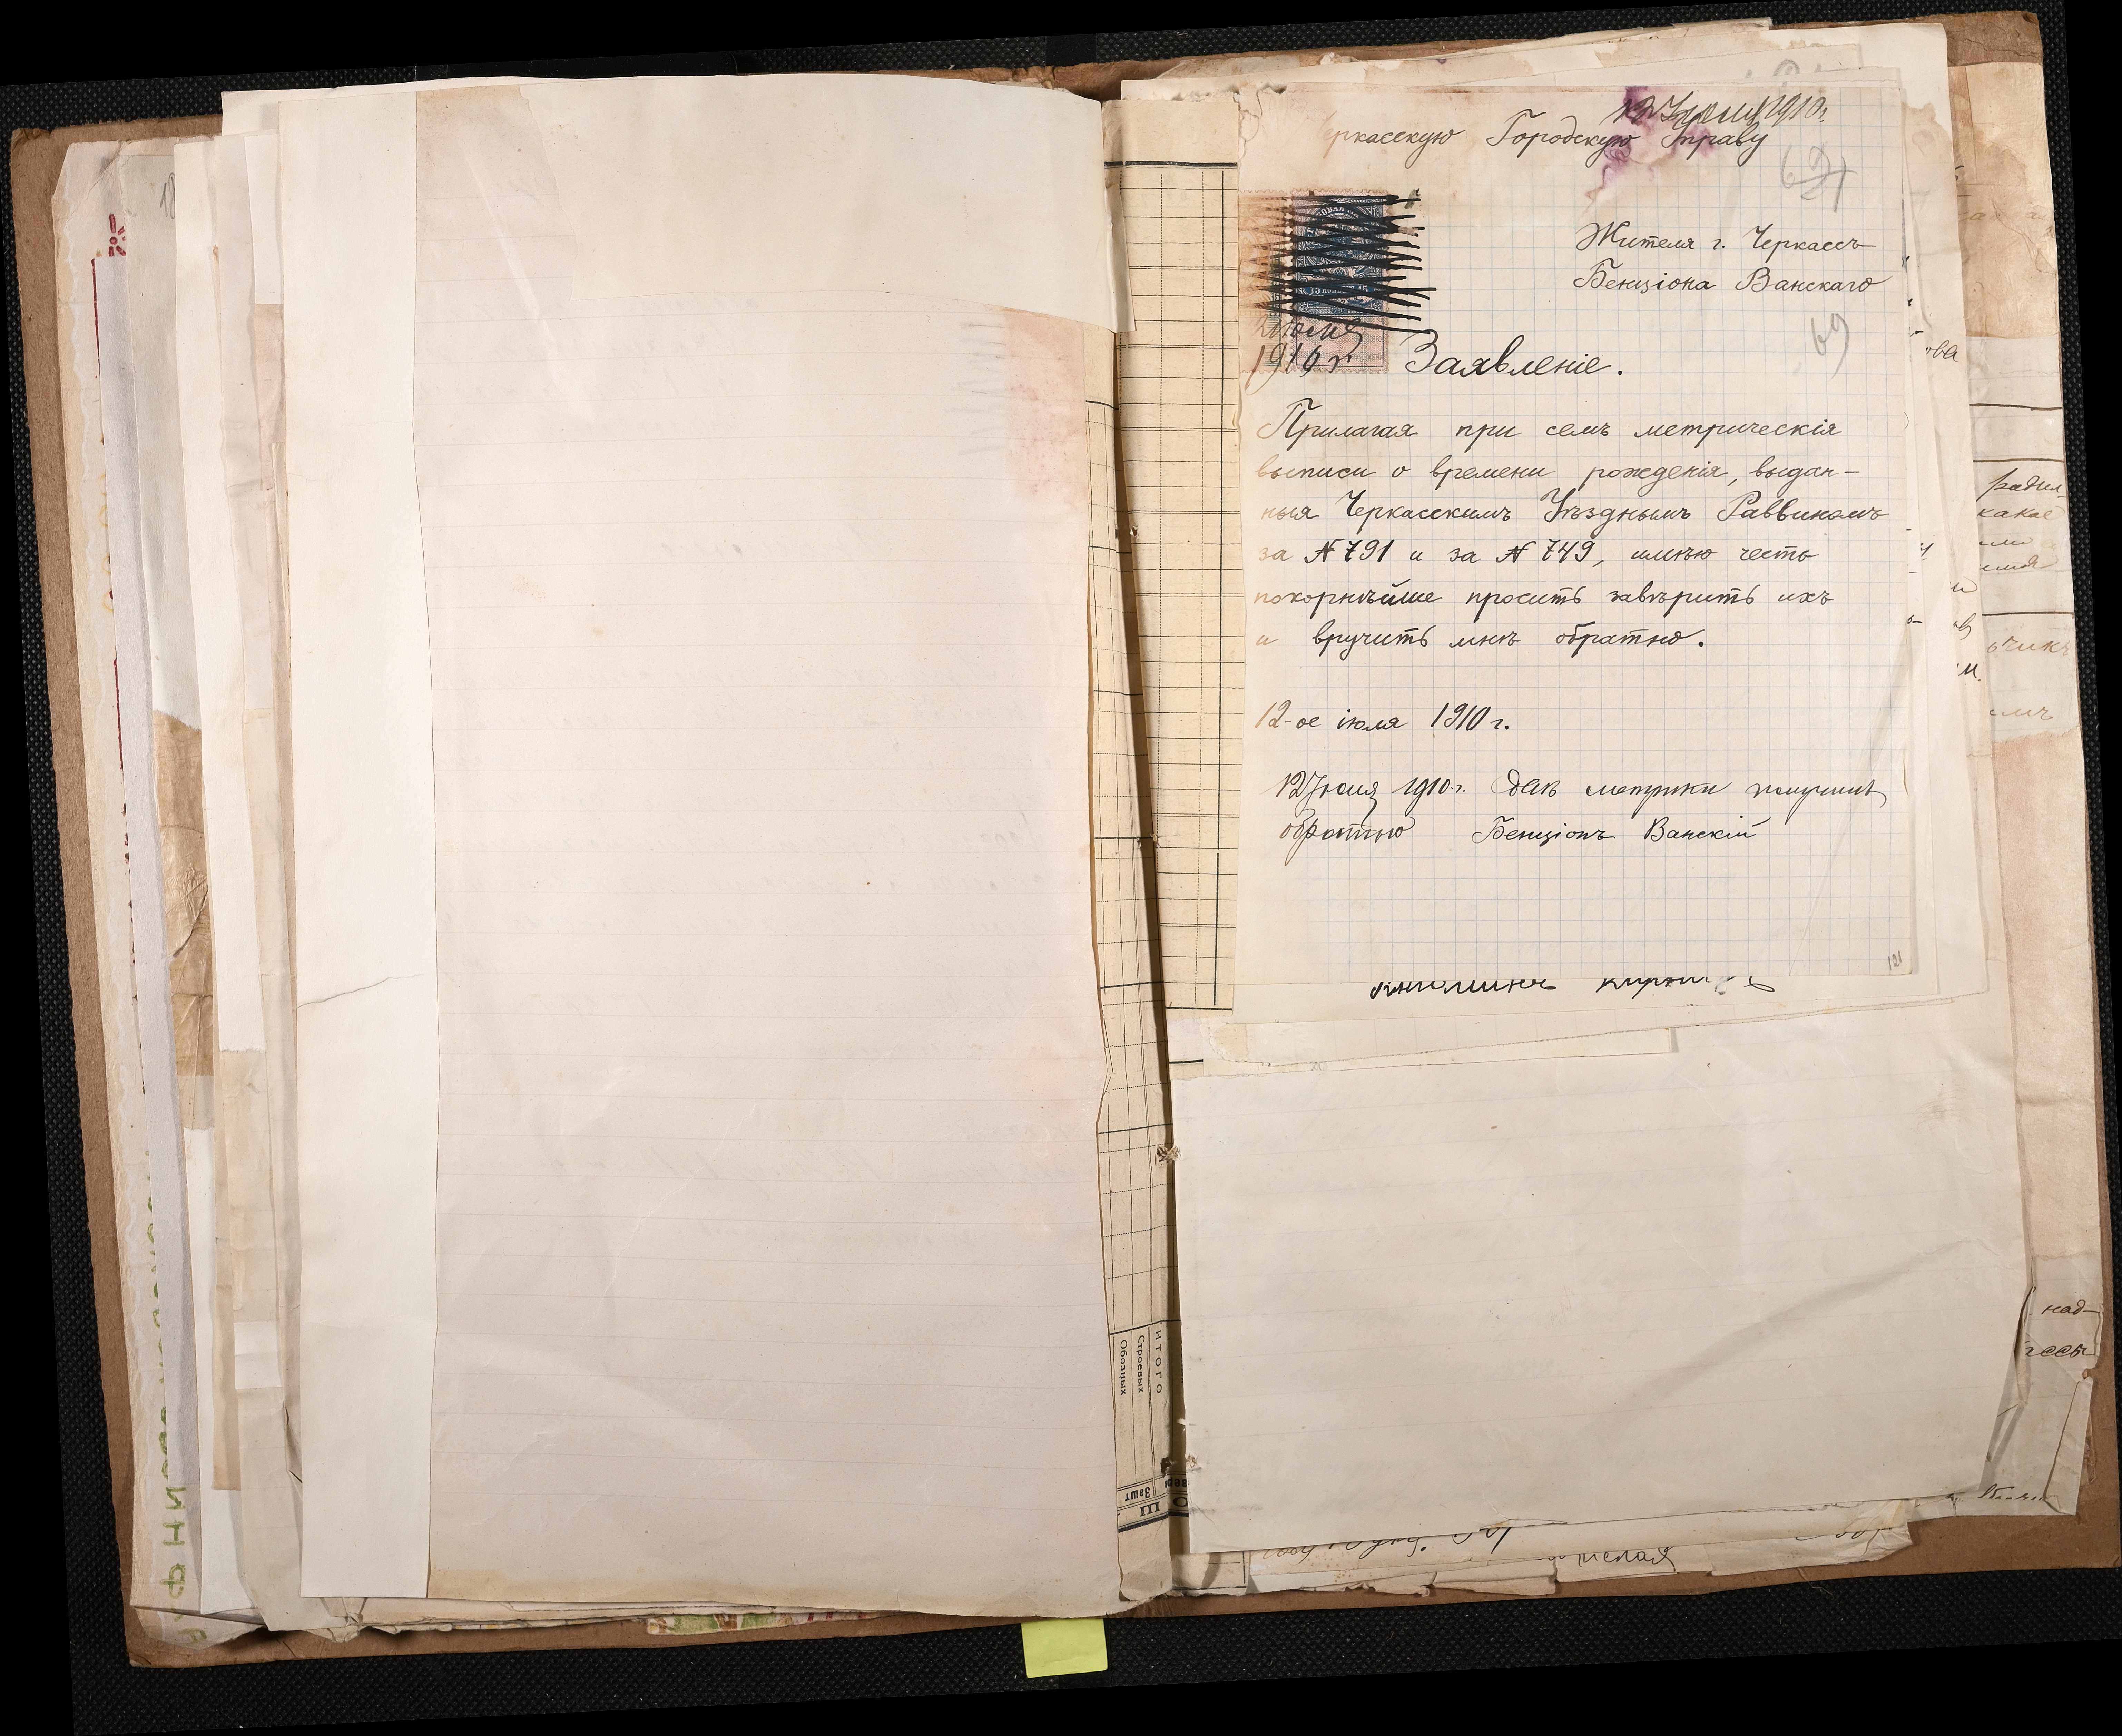 12 Іюля 1910 г.
еркасскую Городскую Управу
69
Жителя г. Черкассъ
Бенціона Ванскаго
69
15
Июля
1910 г.
Заявленіе.
Прилагая при семъ метрическія
выписи о времени рожденія, выдан-
ныя Черкасскимъ Уѣзднымъ Раввиномъ
за № 791 и за № 749, имѣю честь
покорнѣйше просить завѣрить ихъ
и вручить мнѣ обратно.
12-ое іюля 1910 г.
12 Іюля 1910 г. Двѣ метрики получилъ
обратно Бенціонъ Ванскій
121
ова
какое
ъчикъ
емъ
над-
ИТОГО
Строевых
Обозных
III